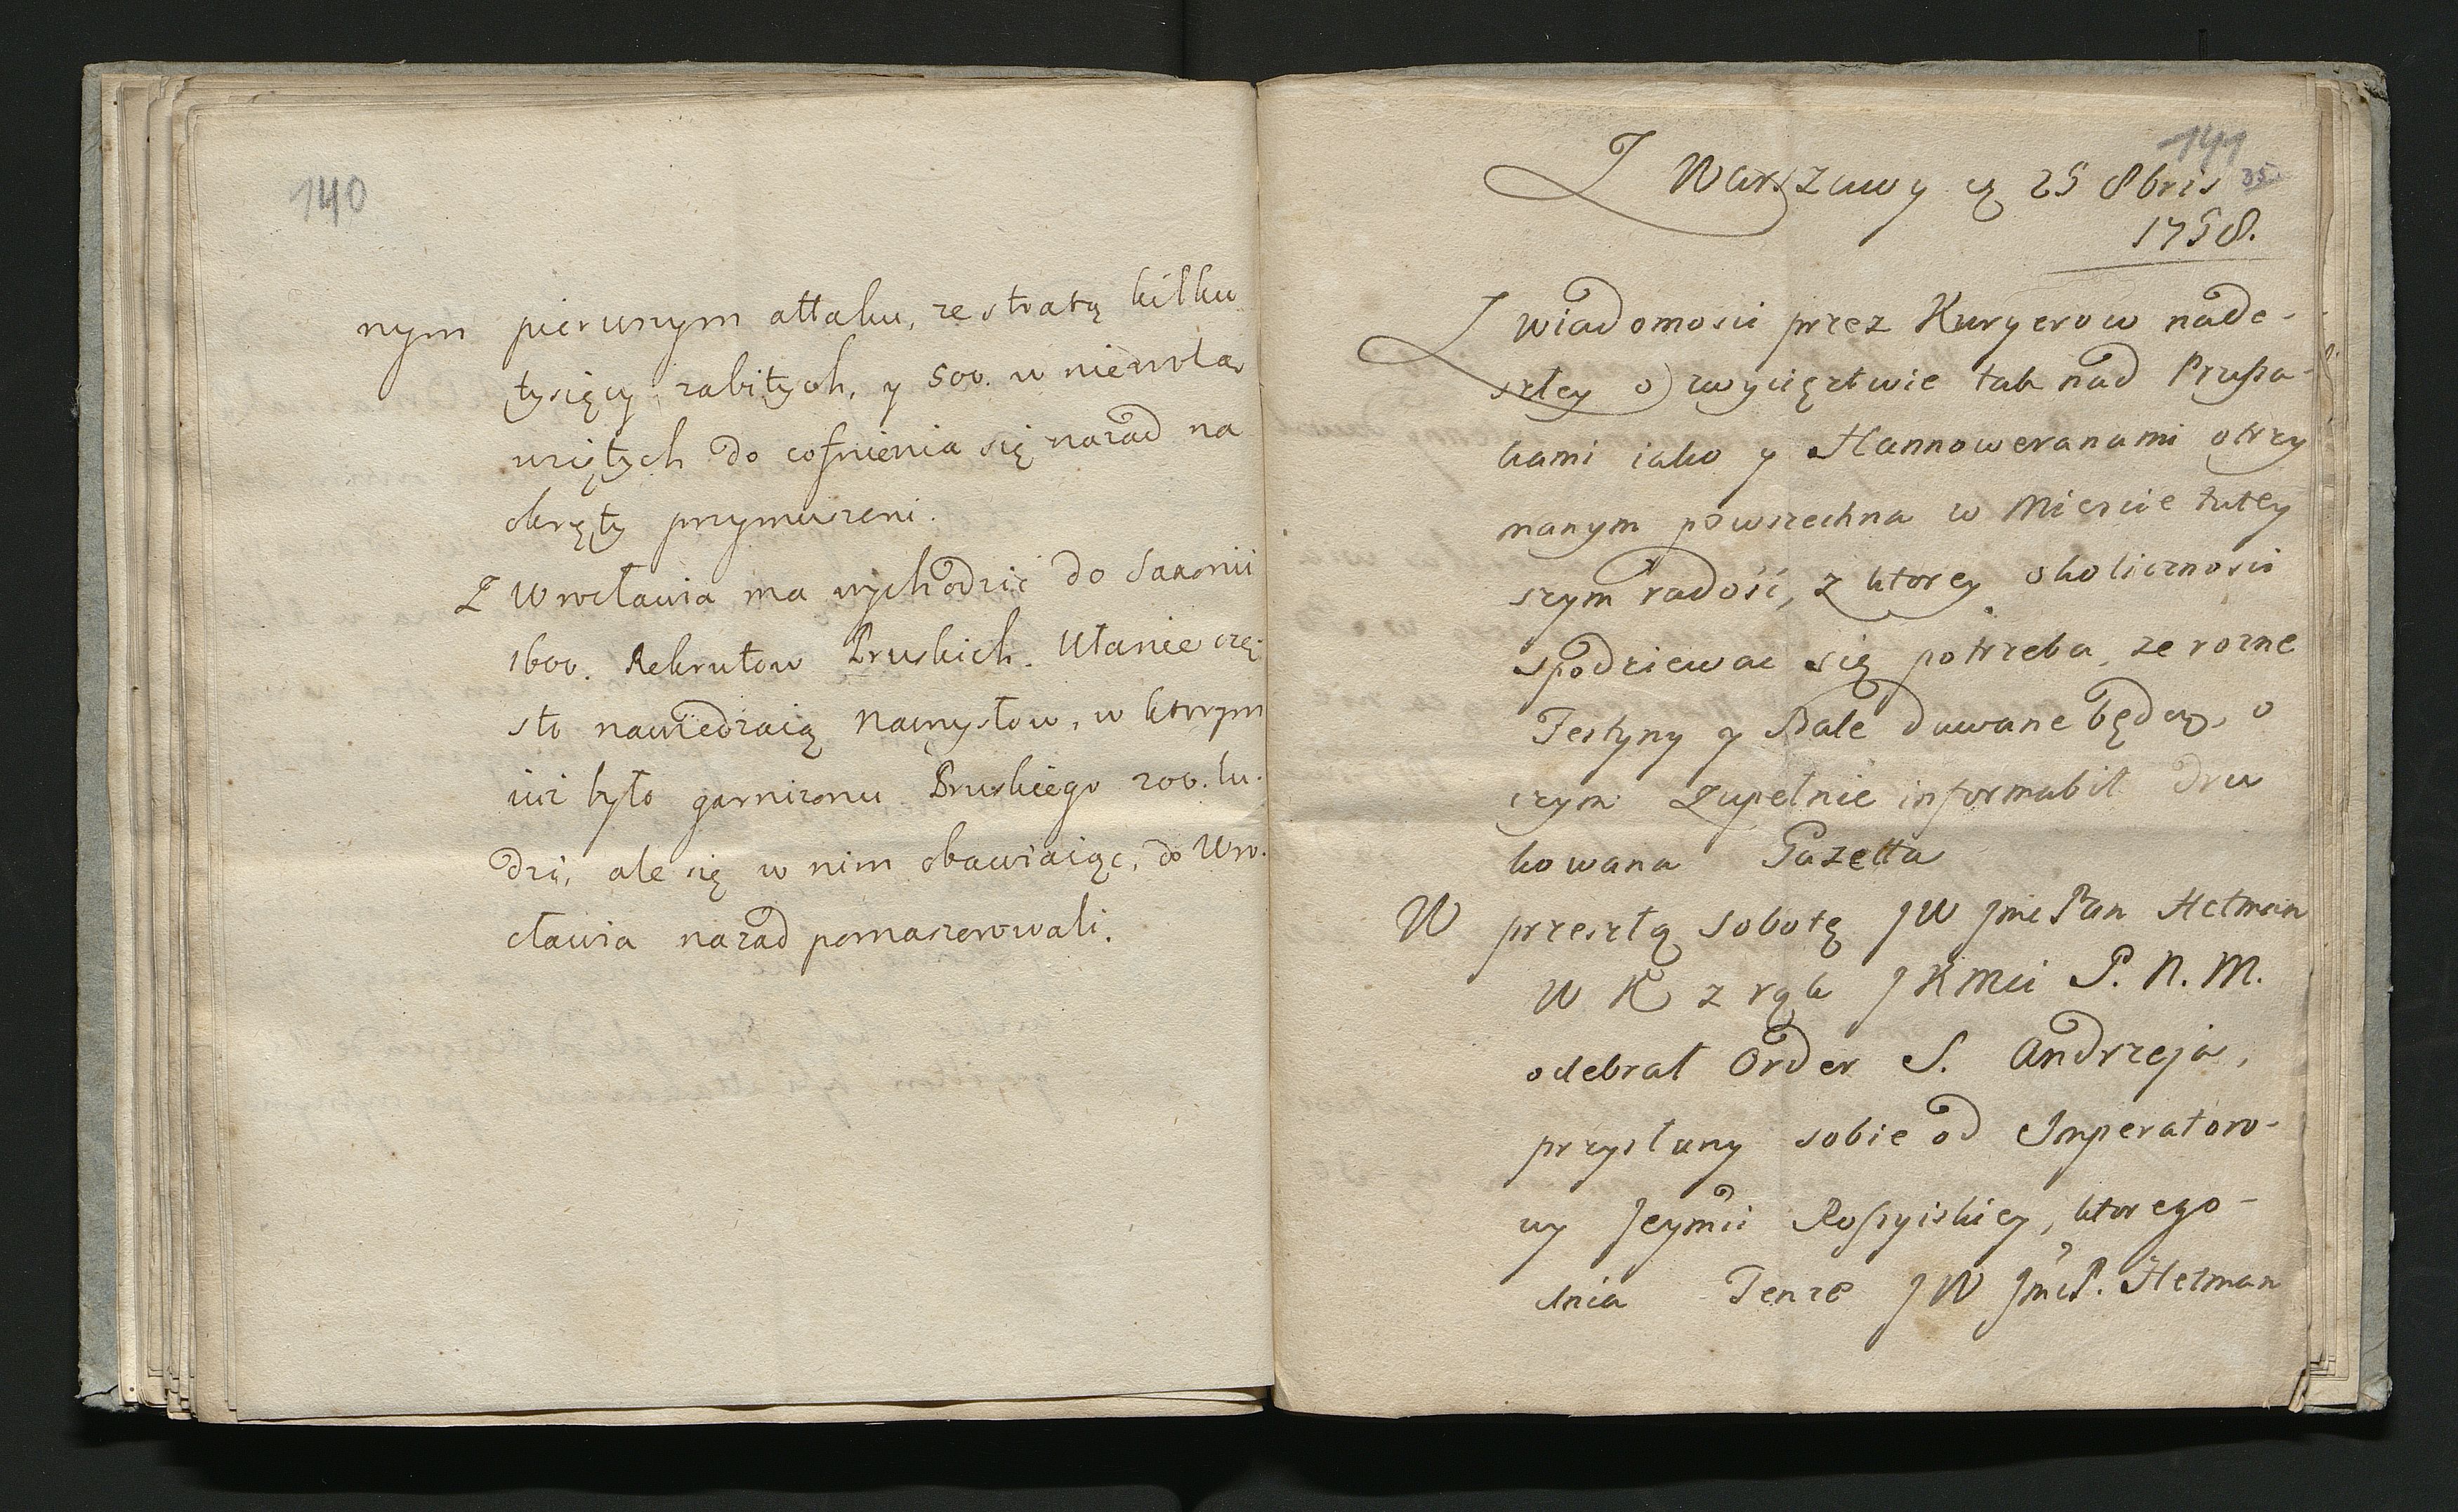 140
nym pierwszym attaku, ze stratą kilku
tysięcy zabitych, y 500. w niewolą
wziętych do cofnienia się nazad na
okręty przymuszeni.
Z Wrocławia ma wychodzić do Saxonii
1600. Rekrutow Pruskich. Ułanie czę-
sto nawiedzaią Namysłow, w ktorym
iuż było garnizonu Pruskiego 200. lu-
dzi, ale się w nim obawiaiąc, do Wro-
cławia nazad pomaszerowali.
141
Z Warszawy 25 8bris 35
1758.
Z wiadomosci przez Kuryerow nade-
szłey o zwycięztwie tak nad Prusa-
kami iako y Hannoweranami otrzy
manym powszechna w Miescie tutey
szym radość, z ktorey okolicznosci
spodziewac się potrzeba, ze rozne
Festyny y Bale dawane będą, o
czym Zupełnie informabit dru
kowana Gazetta
W przeszłą sobotę JW Jmc Pan Hetman
W K z rąk JKMci P. N. M.
odebrał Order S. Andrzeja,
przysłany sobie od Imperatoro-
wy Jeymci Rossyiskiey, ktorego-
dnia Tenze JW JmcP. Hetman